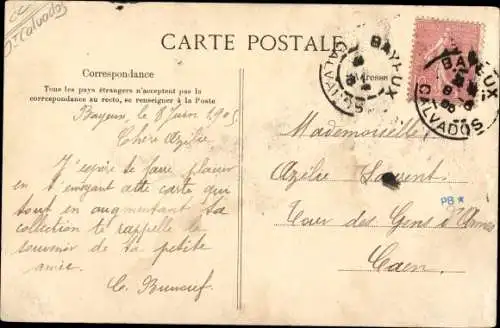 Dt Calvados
CARTE POSTALE
Correspondance
Tous les pays étrangers n'acceptent pas la
correspondance au recto, se renseigner à la Poste
Adresse
BAYEUX
CALVADOS
BAYEUX
CALVADOS
Bayeux le 8 Juin 1905
Chère Azélie
J'espère te faire plaisir
en t'envoyant cette carte qui
tout en augmentant ta
collection te rappelle le
souvenir de ta petite
amie.
C.
Mademoiselle
Azélie Laurent
Cour des Gens d'Armes
Caen.
PB *